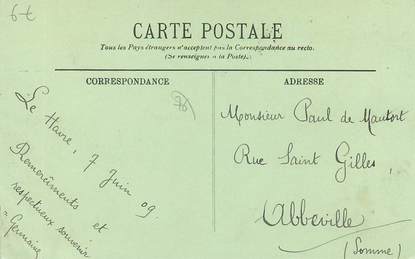 6€
CARTE POSTALE
Tous les Pays étrangers n'acceptent pas la Correspondance au recto.
(Se renseigner à la Poste).
CORRESPONDANCE
Le Havre, 7 Juin 09.
Remerciments et
respectueux souvenir
Germaine
76
ADRESSE
Monsieur Paul de Mautort
Rue Saint Gilles,
Abbeville
(Somme)